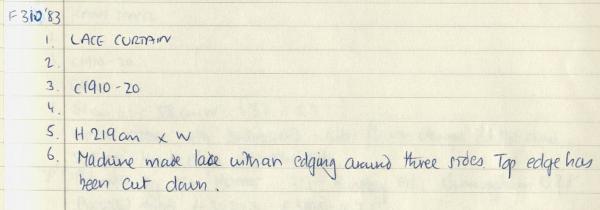 F310'83
1. LACE CURTAIN
2.
3. C1910-20
4.
5. H 219cm x W
6. Machine made lace with an edging around three sides. Top edge has
been cut down.